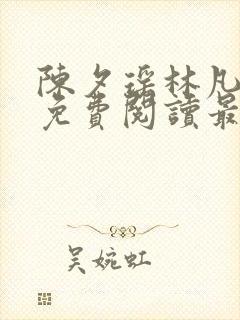 陳夕瑶林凡
免費閱讀最
吳婉虹